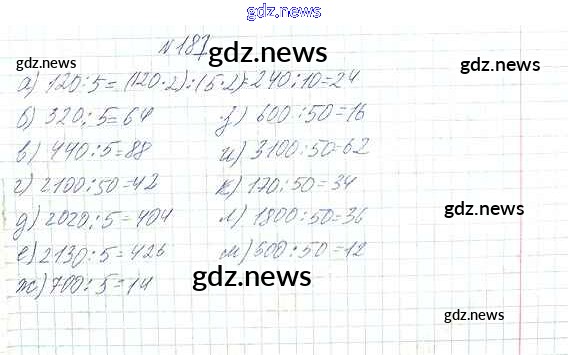 gdz.news
№ 187
gdz.news
gdz.news
gdz.news
а) 120:5=(120·2):(5·2)=240:10=24
б) 320:5=64
з) 600:50=16
в) 440:5=88
и) 3100:50=62
г) 2100:50=42
к) 170:50=34
gdz.news
д) 2020:5=404
л) 1800:50=36
е) 2130:5=426
м) 600:50=12
gdz.news
ж) 700:5=14
gdz.news